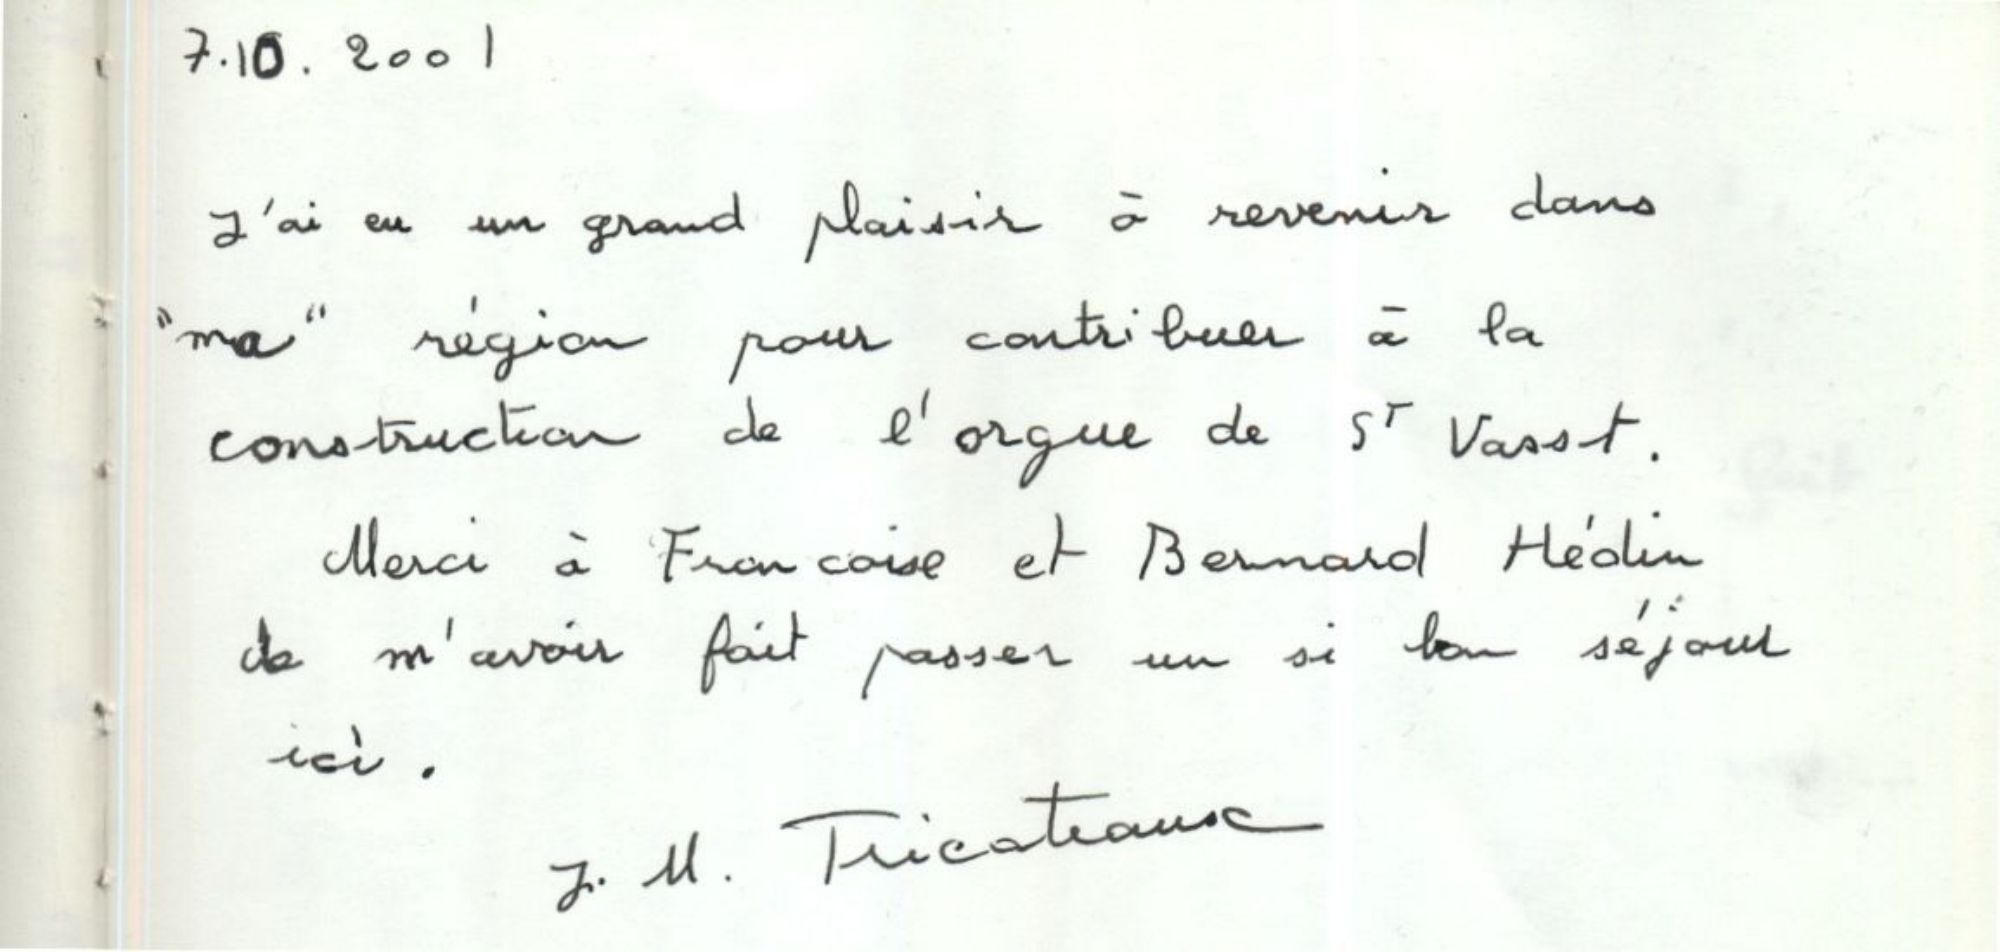 7.10.2001
J'ai eu un grand plaisir à revenir dans
"ma" région pour contribuer à la
construction de l'orgue de St Vasst.
Merci à Francoise et Bernard Hédin
de m'avoir fait passer un si bon séjour
ici.
J. M. Tricoteaux